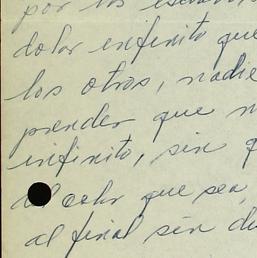 por los
dolor infinito que
los otros, nadie
prender que
infinito, sin
el color que sea,
al final sin